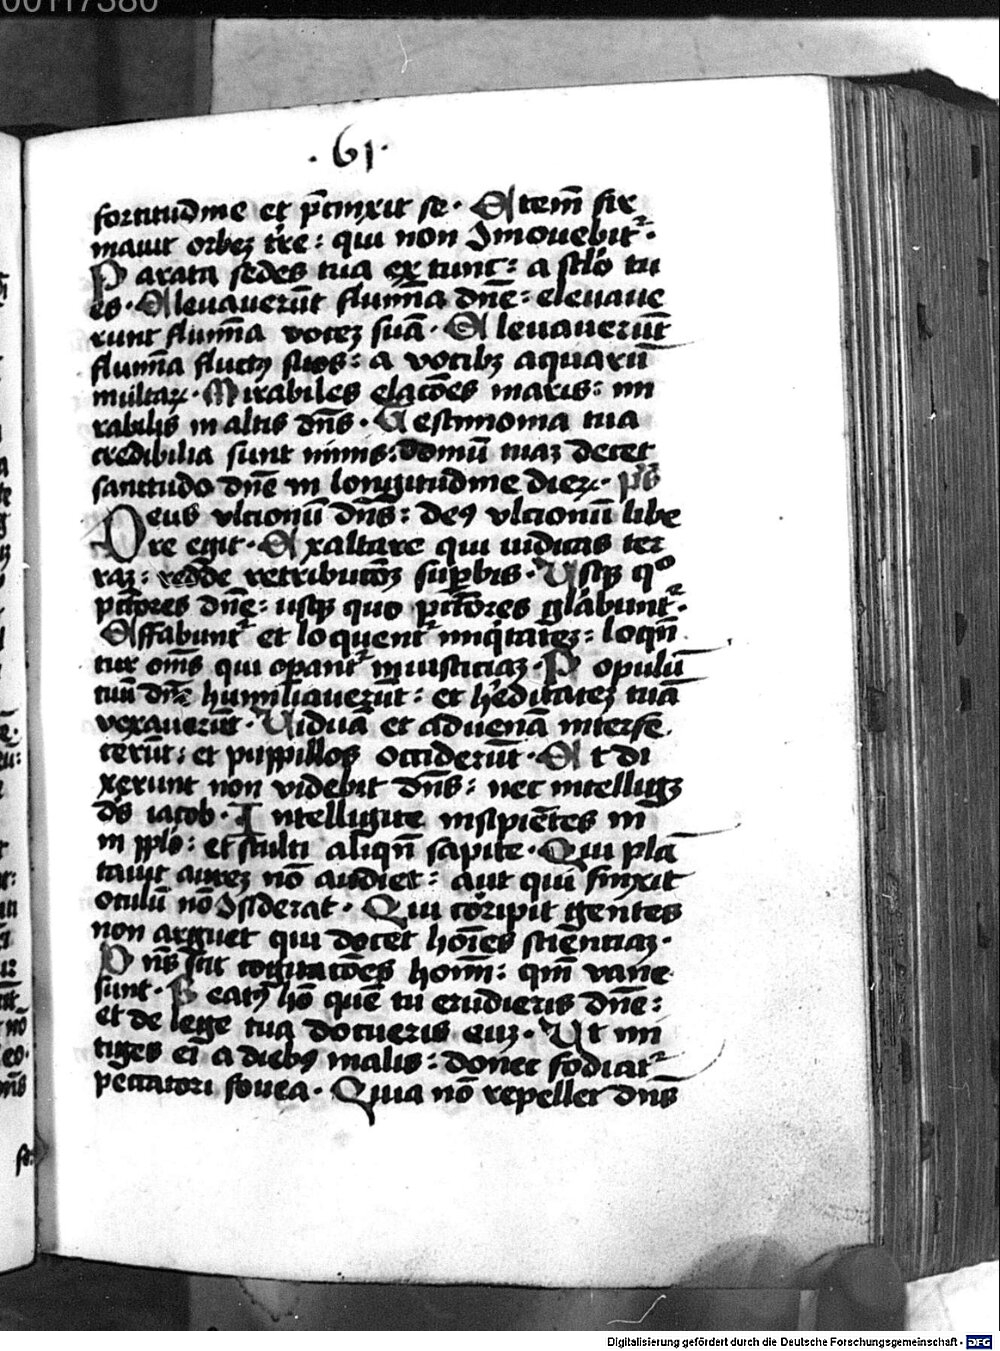 00117380
·61·
fortitudīe et p̄cinxit se · Etem̄ fir
mauit orbeʒ tr̄e : qui non ɔmouebit᷑ ·
Parata sedes tua ex tunc : a sc̄lo tu
es · Eleuauerūt flumīa dn̄e : eleuaue
runt flumīa voceʒ suā · Eleuauerūt
flumīa fluctꝰ suos : a vocibʒ aquarū
multaꝝ · Mirabiles elac̄oes maris : mi
rabilis in altis dn̄s · Testimonia tua
credibilia sunt nimis : domū tuaʒ decet
sanctitudo dn̄e in longitudīe dieꝝ · ps̄
Deus vltionū dn̄s : deꝰ vltionū libe
re egit · Exaltare qui iudicas ter
raʒ : redde retributōeʒ suꝑbis · Vsqʒ qͦ
pc̄tores dn̄e : usqʒ quo pc̄tores gl̄abunt᷑ ·
Effabunt᷑ et loquent᷑ iniq̇tateʒ : loqn̄
tur om̄s qui oꝑant᷑ iniusticiaʒ · Populū
tuū dn̄e humiliauerūt : et h̓editateʒ tuā
vexauerūt · Viduā et aduenā interfe
cerūt : et puppillos occiderūt · Et di
xerunt non videbit dn̄s : nec intelligʒ
ds̄ iacob · Intelligite insipiētes in
in ppl̄o : et stulti aliqn̄ sapite · Qui plā
tauit aureʒ nō audiet : aut qui finxit
oculū nō ɔsiderat · Qui cōripit gentes
non arguet qui docet hoīes sciēntiaʒ ·
Dn̄s scit cogitac̄oes hoīm : qm̄ vane
sunt · Beatꝰ hō quē tu erudieris dn̄e :
et de lege tua docueris euʒ · Vt mi
tiges ei a diebꝰ malis : donec fodiat᷑
peccatori fouea · Quia nō repellet dn̄s
Digitalisierung gefördert durch die Deutsche Forschungsgemeinschaft - DFG